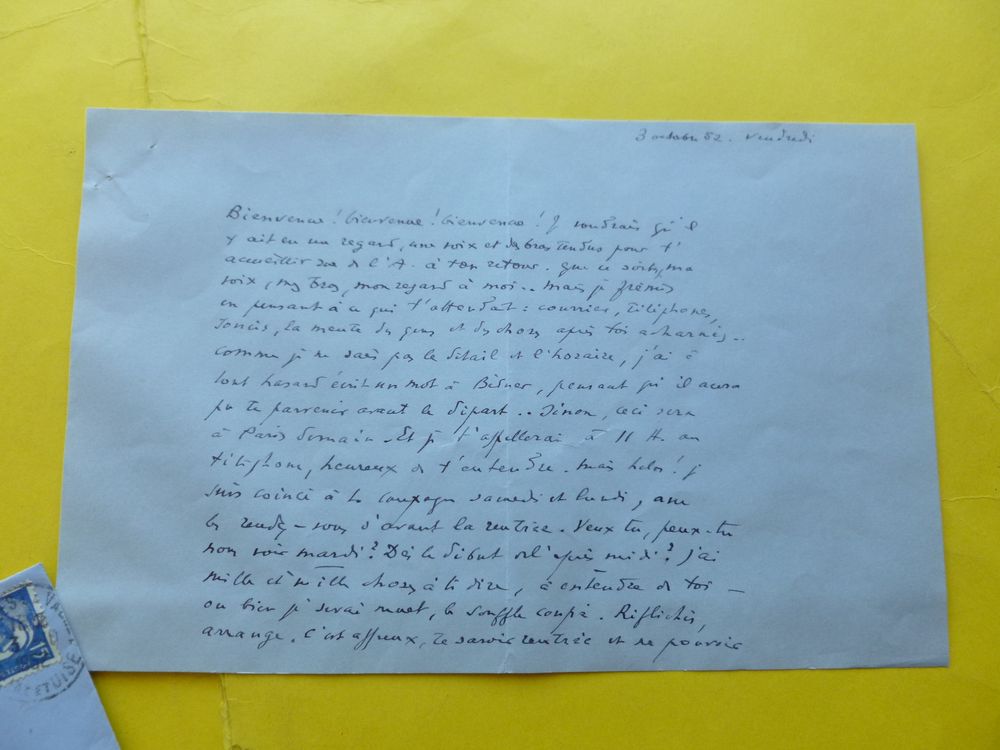 3 octobre 52. Vendredi
Bienvenue! bienvenue! bienvenue! Je voudrais qu'il
y ait eu un regard, une voix et des bras tendus pour t'
accueillir de l'A. à ton retour. que ce soit, ma
voix, mes bras, mon regard à moi.. mais je frémis
en pensant à ce qui t'attendait : courrier, téléphones,
soucis, la meute des gens et des choses après toi acharnés..
comme je ne sais pas le détail et l'horaire, j'ai à
tout hasard écrit un mot à, pensant qu'il aura
pu te parvenir avant le départ.. Sinon, ceci sera
à Paris demain. Et je t'appellerai à 11 H. au
téléphone, heureux de t'entendre. mais hélas! je
suis coincé à la campagne samedi et lundi, avec
les rendez-vous d'avant la rentrée. Veux tu, peux-tu
nous voir mardi? Dès le début de l'après midi? J'ai
mille et mille choses à te dire, à entendre de toi —
ou bien je serai muet, le souffle coupé. Réfléchis,
arrange. C'est affreux, te savoir rentrée et ne pouvoir